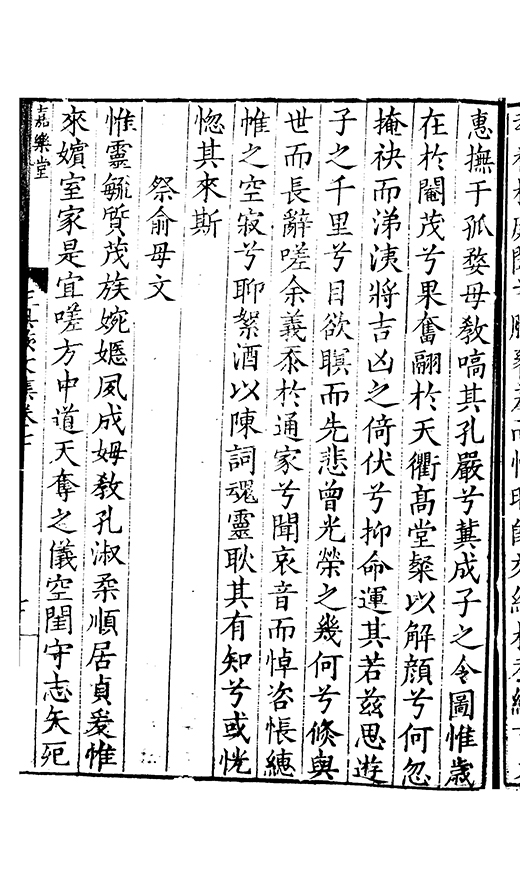 惠撫于孤嫠母教嗃其孔嚴兮冀成子之令圖惟歲
在於閹茂兮果奮翮於天衢高堂粲以解顏兮何忽
掩袂而涕洟將吉凶之倚伏兮抑命運其若茲思遊
子之千里兮目欲瞑而先悲曾光榮之幾何兮倏與
世而長辭嗟余義忝於通家兮聞哀音而悼咨悵繐
帷之空寂兮聊絮酒以陳詞魂靈耿其有知兮或恍
惚其來斯
祭俞母文
惟靈毓質茂族婉嫕夙成姆教孔淑柔順居貞爰惟
來嬪室家是宜嗟方中道天奪之儀空閨守志矢死
嘉樂堂